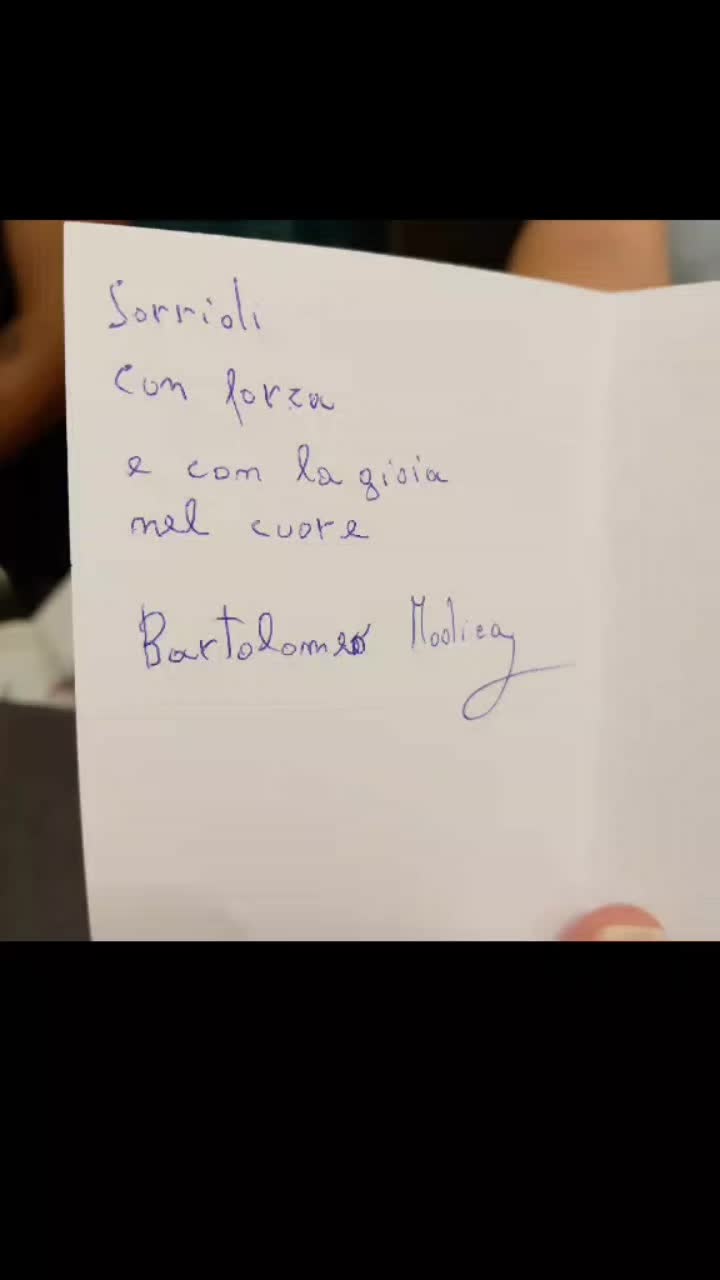 Sorridi
con forza
e con la gioia
nel cuore
Bartolomeo Modica